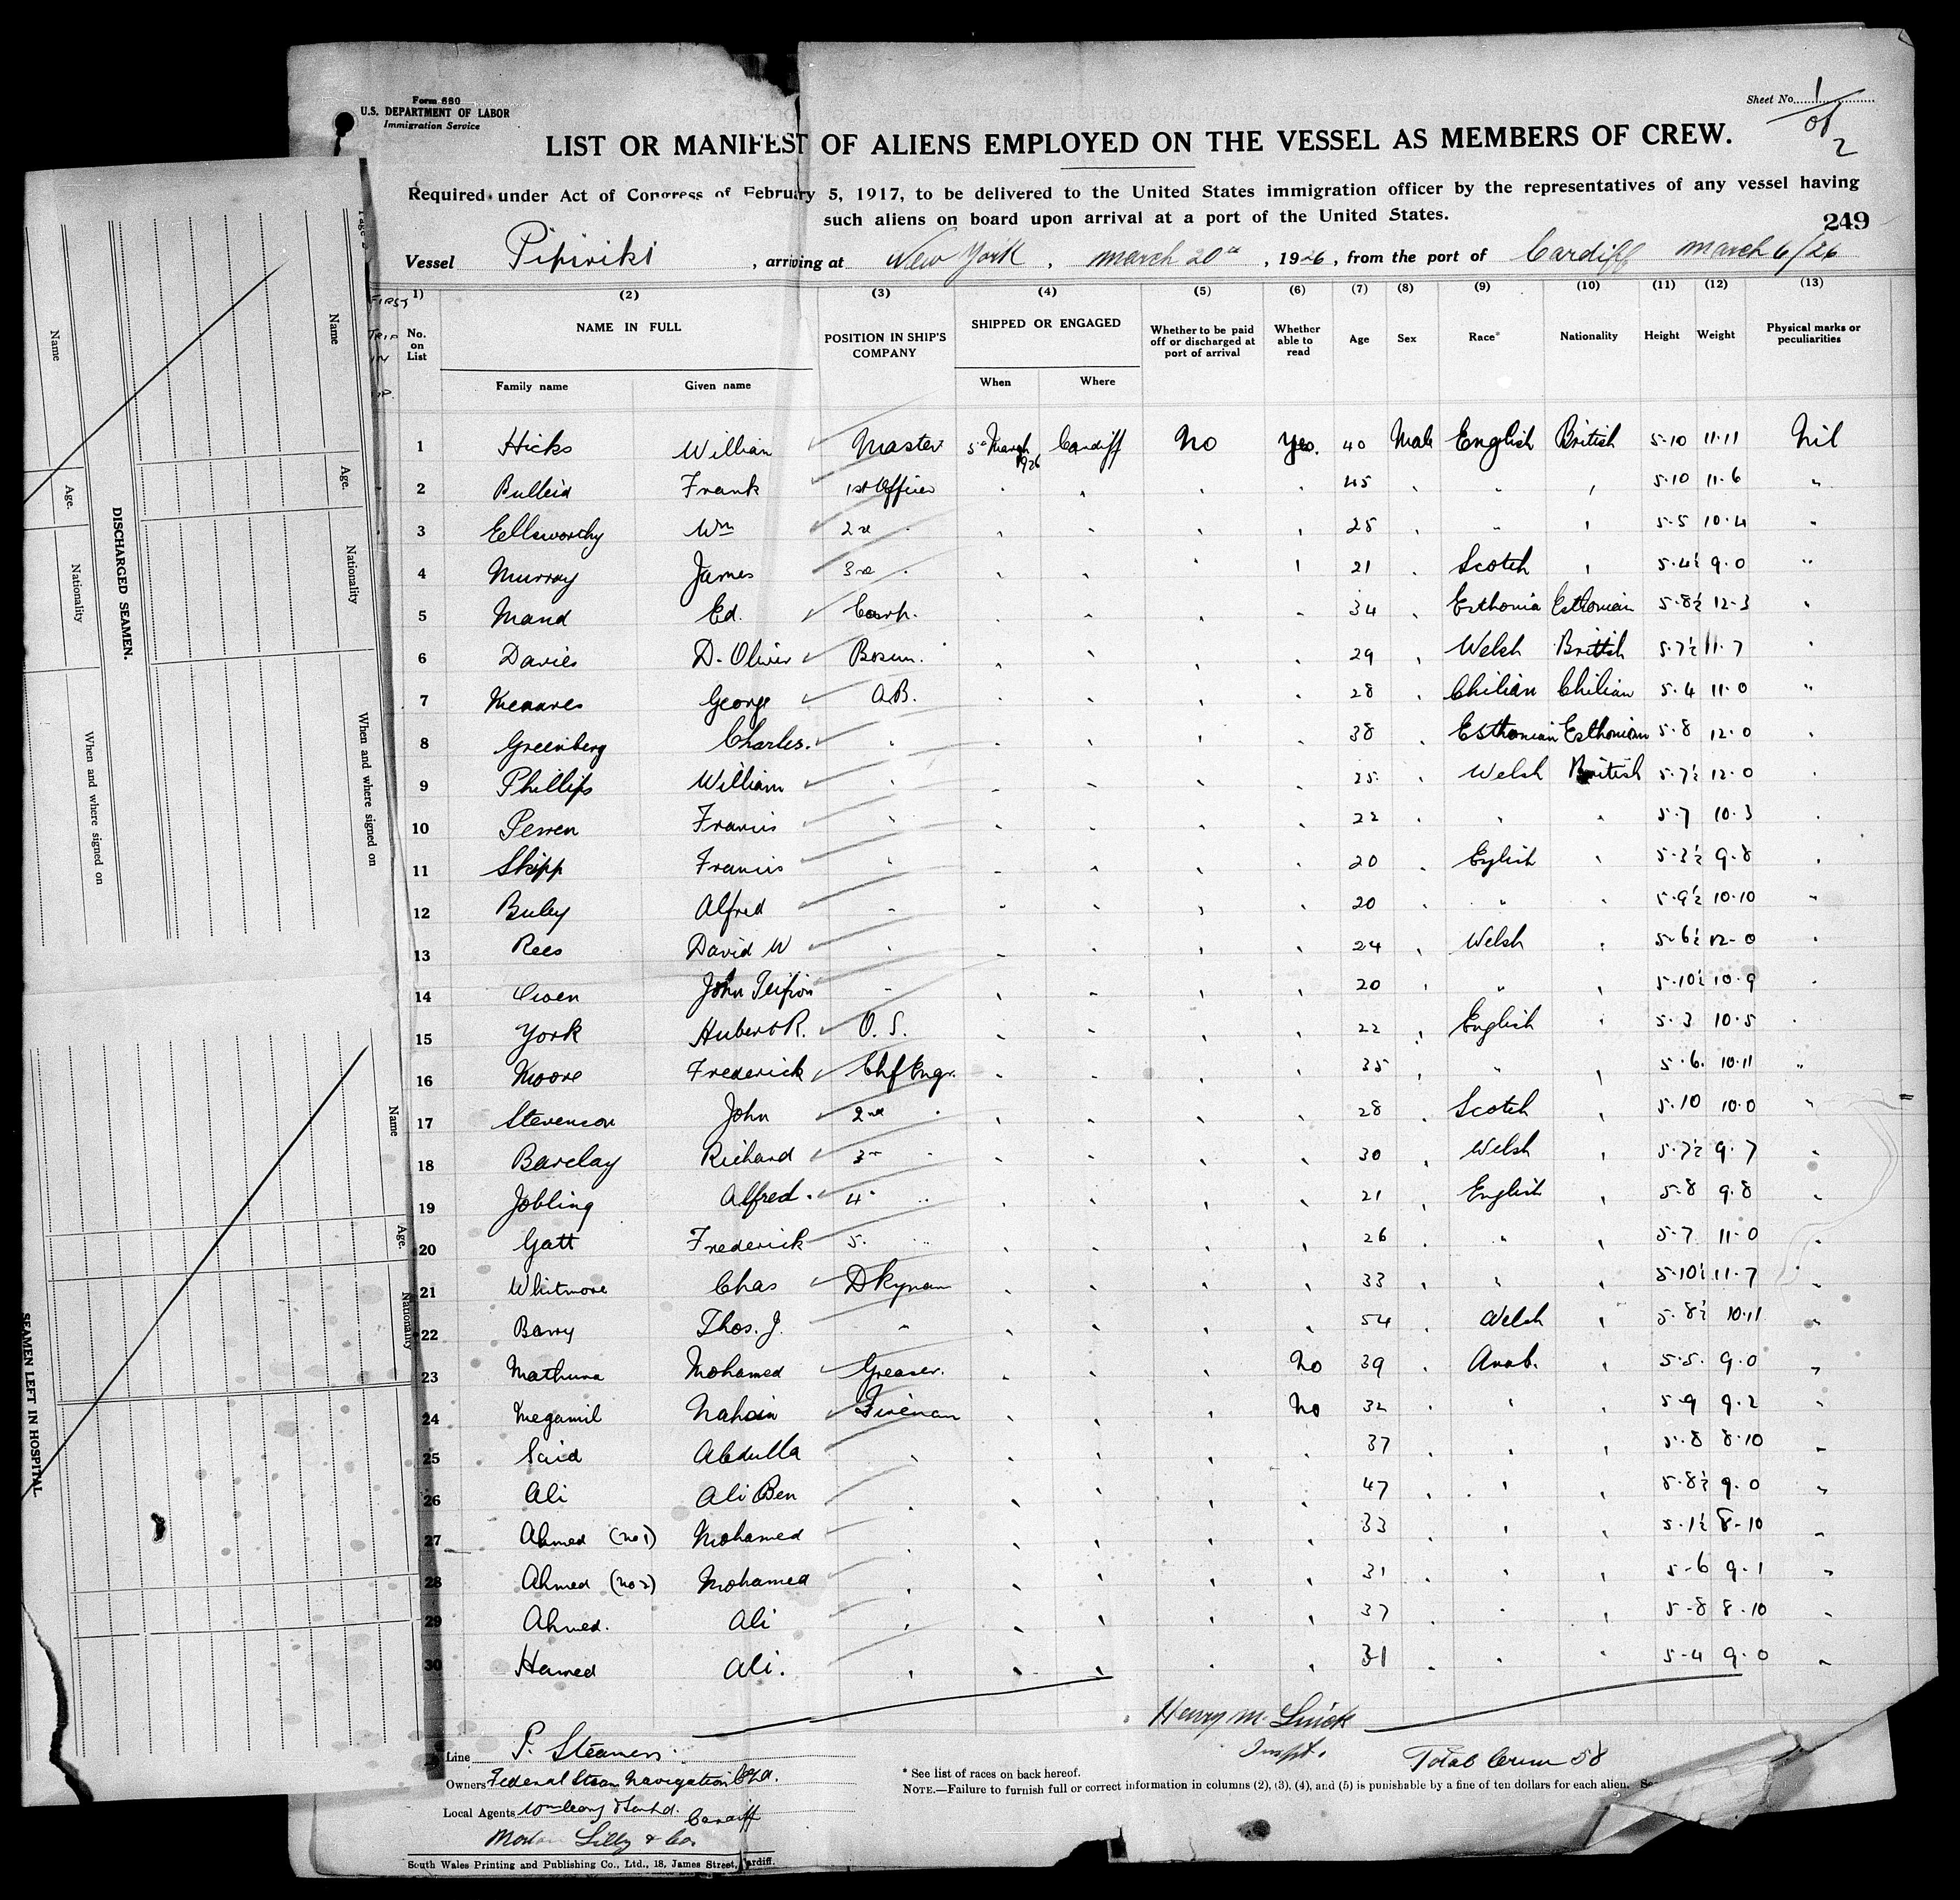 Form 680
U.S. DEPARTMENT OF LABOR
Immigration Service
Sheet No. 1 of 2
LIST OR MANIFEST OF ALIENS EMPLOYED ON THE VESSEL AS MEMBERS OF CREW.
Required under Act of Congress of February 5, 1917, to be delivered to the United States immigration officer by the representatives of any vessel having
such aliens on board upon arrival at a port of the United States.
249
Vessel Pipiriki, arriving at New York, March 20th, 1926, from the port of Cardiff March 6/26
FIRST TRIP IN
(1) (2) (3) (4) (5) (6) (7) (8) (9) (10) (11) (12) (13)
No. on List NAME IN FULL POSITION IN SHIP'S COMPANY SHIPPED OR ENGAGED Whether to be paid off or discharged at port of arrival Whether able to read Age Sex Race* Nationality Height Weight Physical marks or peculiarities
Family name Given name When Where
1 Hicks William Master 5th March 1926 Cardiff No Yes. 40 Male English British 5-10 11-11 Nil
2 Bulleid Frank 1st Officer " " " " 45 " " " 5-10 11-6 "
3 Ellsworthy Wm 2nd " " " " " 28 " " " 5-5 10-4 "
4 Murray James 3rd " " " " " 21 " Scotch " 5-4½ 9-0 "
5 Mand Ed. Carp. " " " " 34 " Esthonia Esthonian 5-8½ 12-3 "
6 Davies D. Oliver Bosun. " " " " 29 " Welsh British 5-7½ 11-7 "
7 George A.B. " " " " 28 " Chilian Chilian 5-4 11-0 "
8 Greenberg Charles. " " " " " 38 " Esthonian Esthonian 5-8 12-0 "
9 Phillips William " " " " " 25 " Welsh British 5-7½ 12-0 "
10 Perren Francis " " " " " 22 " " " 5-7 10-3 "
11 Skipp Francis " " " " " 20 " English " 5-3½ 9-8 "
12 Buley Alfred " " " " " 20 " " " 5-9½ 10-10 "
13 Rees David W " " " " " 24 " Welsh " 5-6½ 12-0 "
14 Owen John Teifion " " " " " 20 " " " 5-10½ 10-9 "
15 York Hubert R. O.S. " " " " 22 " English " 5-3 10-5 "
16 Moore Frederick Chf Engr. " " " " 35 " " " 5-6. 10-11 "
17 Stevenson John 2nd " " " " " 28 " Scotch " 5-10 10-0 "
18 Barclay Richard 3rd " " " " " 30 " Welsh " 5-7½ 9-7 "
19 Jobling Alfred. 4th " " " " " 21 " English " 5-8 9-8 "
20 Gatt Frederick 5. " " " " " 26 " " " 5-7 11-0 "
21 Whitmore Chas Dkyman " " " " 33 " " " 5-10½ 11-7 "
22 Barry Thos. J. " " " " " 54 " Welsh " 5-8½ 10-11 "
23 Mathuna Mohamed Greaser. " " " No 39 " Arab. " 5-5. 9-0 "
24 Megamil Nahoin Fireman " " " No 32 " " " 5-9 9-2 "
25 Said Abdulla " " " " " 37 " " " 5-8 8-10 "
26 Ali Ali Ben " " " " " 47 " " " 5-8½ 9-0 "
27 Ahmed (No 1) Mohamed " " " " " 33 " " " 5-1½ 8-10 "
28 Ahmed (No 2) Mohamed " " " " " 31 " " " 5-6 9-1 "
29 Ahmed. Ali " " " " " 37 " " " 5-8 8-10 "
30 Hamed Ali. " " " " " 31 " " " 5-4 9-0 "
Henry M.
Inspt.
Total Crew 58
Line P. Steamers.
Owners Federal Steam Navigation Co Ltd.
Local Agents Cardiff
Lilly & Co.
* See list of races on back hereof.
NOTE.—Failure to furnish full or correct information in columns (2), (3), (4), and (5) is punishable by a fine of ten dollars for each alien.
South Wales Printing and Publishing Co., Ltd., 18, James Street, Cardiff.
DISCHARGED SEAMEN.
Name Age. Nationality When and where signed on
Name Age. Nationality When and where signed on
SEAMEN LEFT IN HOSPITAL
Name Age. Nationality